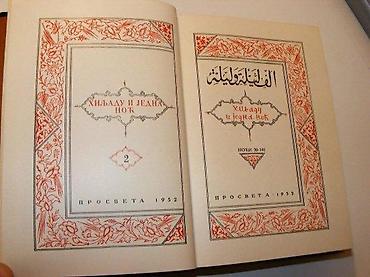 ХИЉАДУ И ЈЕДНА
НОЋ
2
ПРОСВЕТА 1952
الف ليلة وليلة
ХИЉАДУ
И ЈЕДНА НОЋ
НОЋИ
ПРОСВЕТА 1952